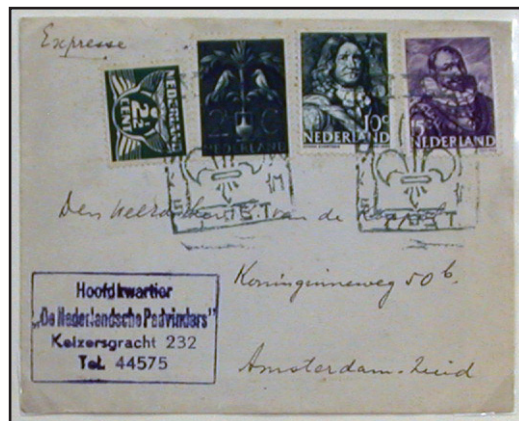 Expresse
NEDERLAND
EEN 2½
2½ C
NEDERLAND
10c
NEDERLAND
15
NEDERLAND
Den Heer van de
Koninginneweg 50 b.
Amsterdam-Zuid
Hoofdkwartier
„De Nederlandsche Padvinders"
Keizersgracht 232
Tel. 44575